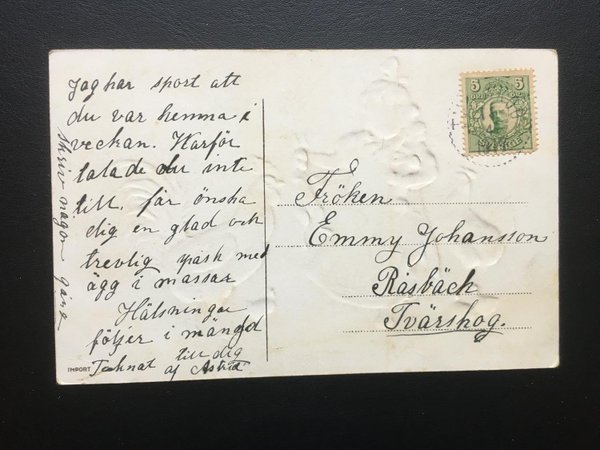 Jag har sport att
du var hemma i
veckan. Warför
talade du inte
till, får önska
dig en glad och
trevlig påsk med
ägg i massor
Hälsningar
följer i mängd
till dig
Tecknat af Astrid
skriv någon gång
IMPORT
Fröken
Emmy Johansson
Råsbäck
Tvärskog.
5 5